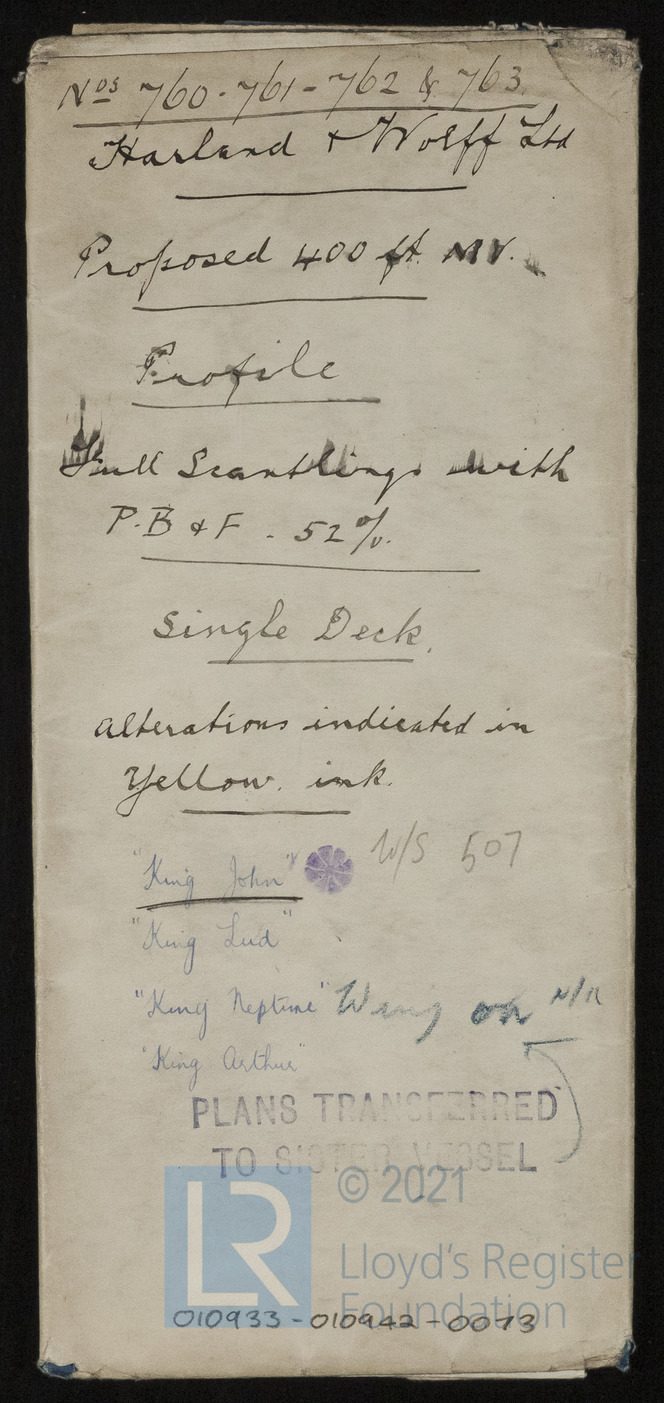 Nos 760-761-762 & 763
Harland & Wolff Ltd
Proposed 400 ft. MV.
Profile
Full Scantlings with
P.B & F - 52%.
Single Deck.
Alterations indicated in
Yellow ink.
"King John" W/S 507
"King Lud"
"King Neptune" Wing on N/R
"King Arthur"
PLANS TRANSFERRED
TO SISTER VESSEL
© 2021
LR
Lloyd's Register
Foundation
010933-010942-0073